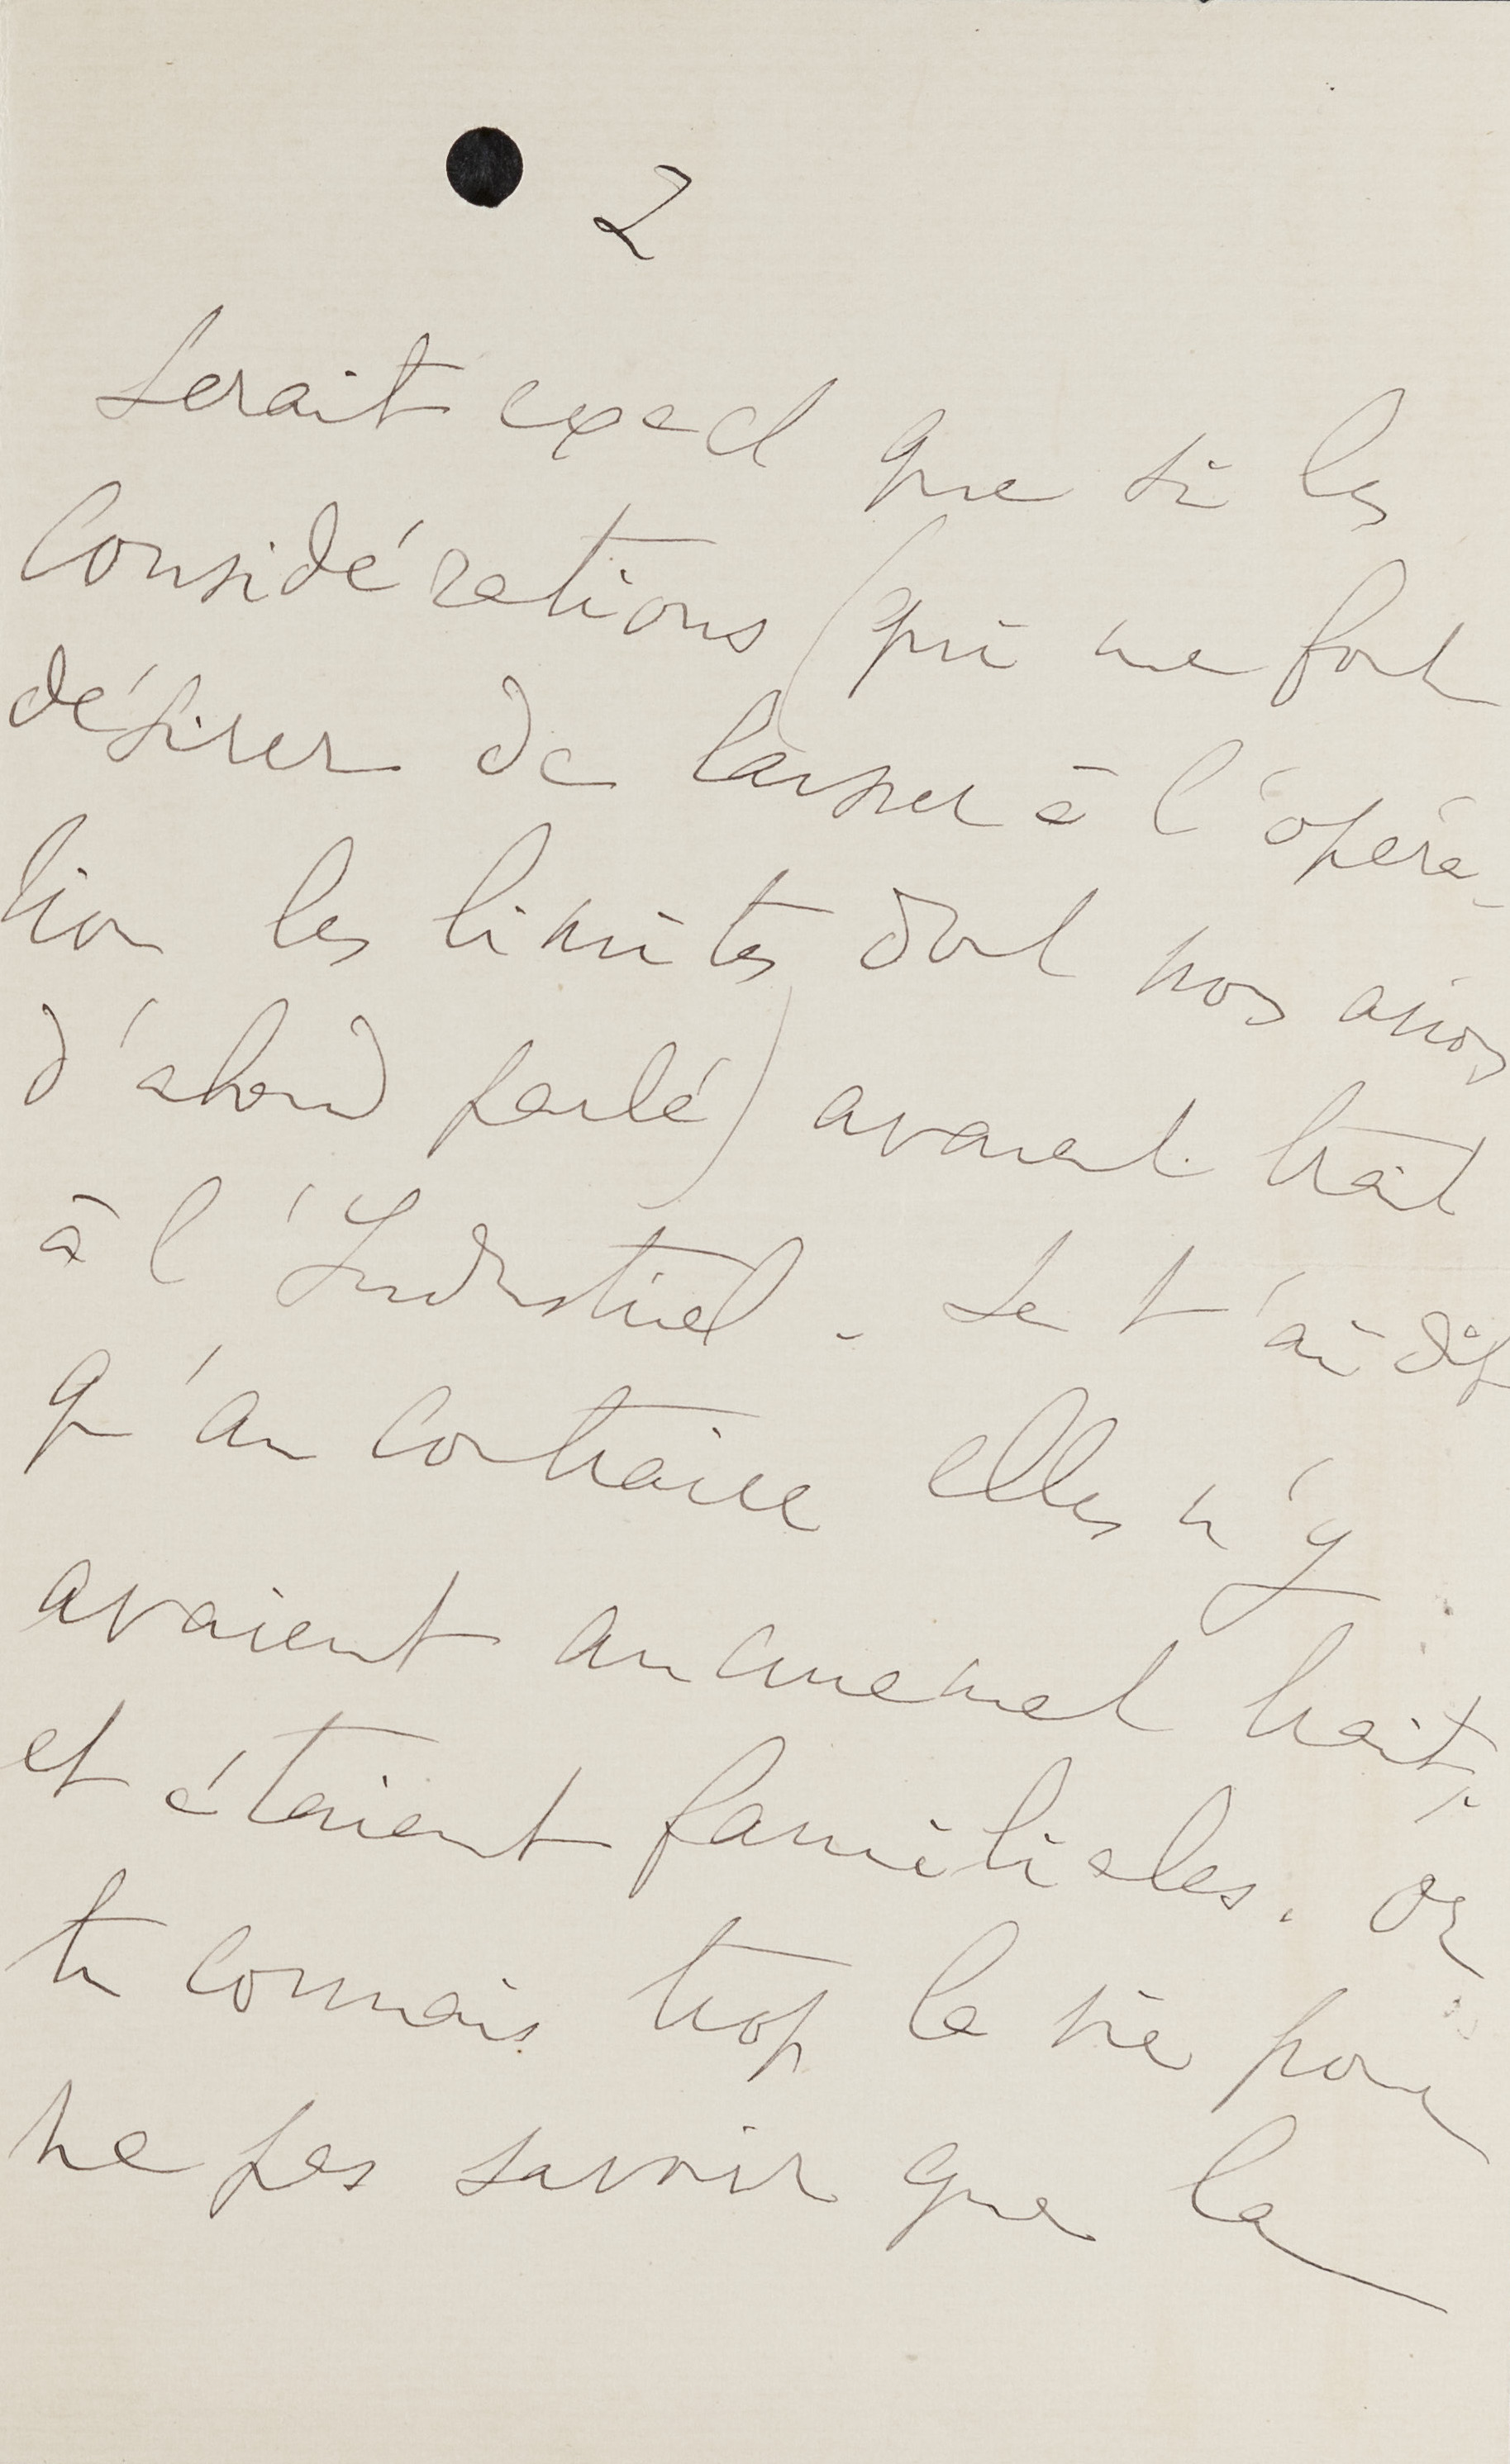 2
serait exact que si les
considérations (qui me font
désirer de laisser à l'opéra-
tion les limites dont nos avions
d'abord parlé) avaient trait
à l'Industriel. Je t'ai dit
qu'au contraire elles n'y
avaient aucunement trait,
et étaient familiales. Or
tu connais trop la vie pour
ne pas savoir que la